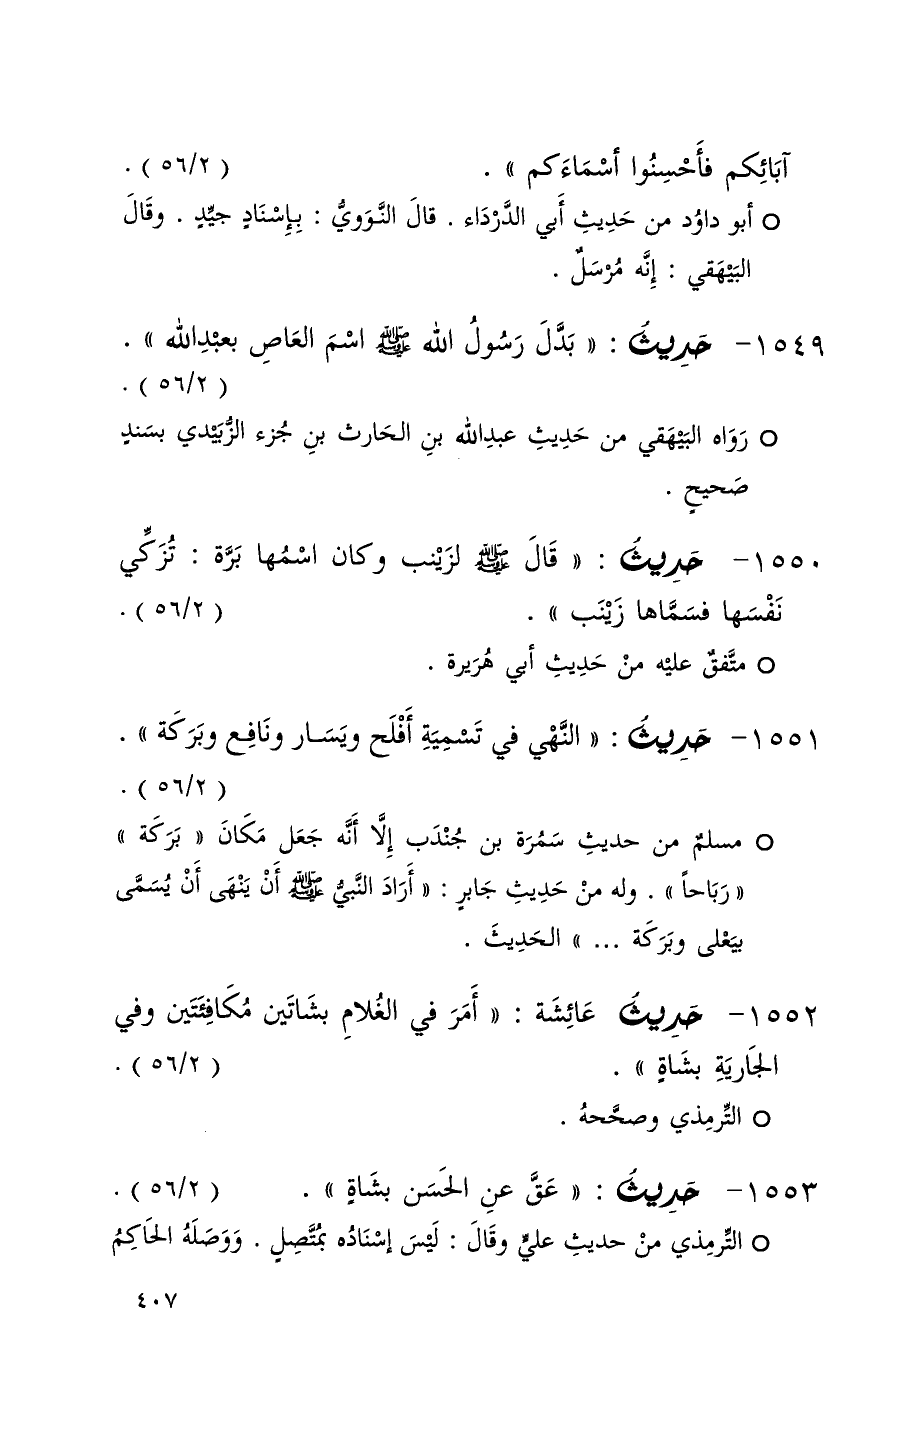 آبَائِكم فأَحْسِنُوا أسْمَاءَكم » . ( ٥٦/٢ ) .
○ أبو داوُد من حَدِيثِ أَبي الدَّرْدَاء . قالَ النَّوَوِيُّ : بِإِسْنَادٍ جيِّدٍ . وقَالَ
البَيْهَقي : إِنَّه مُرْسَلٌ .
١٥٤٩- حَدِيثُ : « بَدَّلَ رَسُولُ الله ﷺ اسْمَ العَاصِ بعبْدِالله » .
( ٥٦/٢ ) .
○ رَوَاه البَيْهَقي من حَدِيثِ عبدِالله بنِ الحَارث بنِ جُزء الزُّبَيْدي بسَندٍ
صَحيحٍ .
١٥٥٠- حَدِيثُ : « قَالَ ﷺ لزَيْنب وكان اسْمُها بَرَّة : تُزَكِّي
نَفْسَها فسَمَّاها زَيْنَب » . ( ٥٦/٢ ) .
○ متَّفقٌ عليْه منْ حَدِيثِ أبي هُرَيرة .
١٥٥١- حَدِيثُ : « النَّهْي في تَسْمِيَةِ أَفْلَح ويَسَـار ونَافِـع وبَرَكَة » .
( ٥٦/٢ ) .
○ مسلمٌ من حديثِ سَمُرَة بن جُنْدَب إِلَّا أَنَّه جَعَل مَكَانَ « بَرَكَة »
« رَبَاحاً » . وله منْ حَدِيثِ جَابرٍ : « أَرَادَ النَّبيُّ ﷺ أَنْ يَنْهَى أَنْ يُسَمَّى
بيَعْلى وبَرَكَة ... » الحَدِيثَ .
١٥٥٢- حَدِيثُ عَائِشَة : « أَمَرَ في الغُلامِ بشَاتَين مُكَافِئَتَين وفي
الجَاريَةِ بشَاةٍ » . ( ٥٦/٢ ) .
○ التِّرمِذي وصحَّحهُ .
١٥٥٣- حَدِيثُ : « عَقَّ عنِ الحَسَن بشَاةٍ » . ( ٥٦/٢ ) .
○ التِّرمِذي منْ حديثِ عليٍّ وقَالَ : لَيْسَ إسْنَادُه بمُتَّصِلٍ . وَوَصَلَهُ الحَاكِمُ
٤٠٧